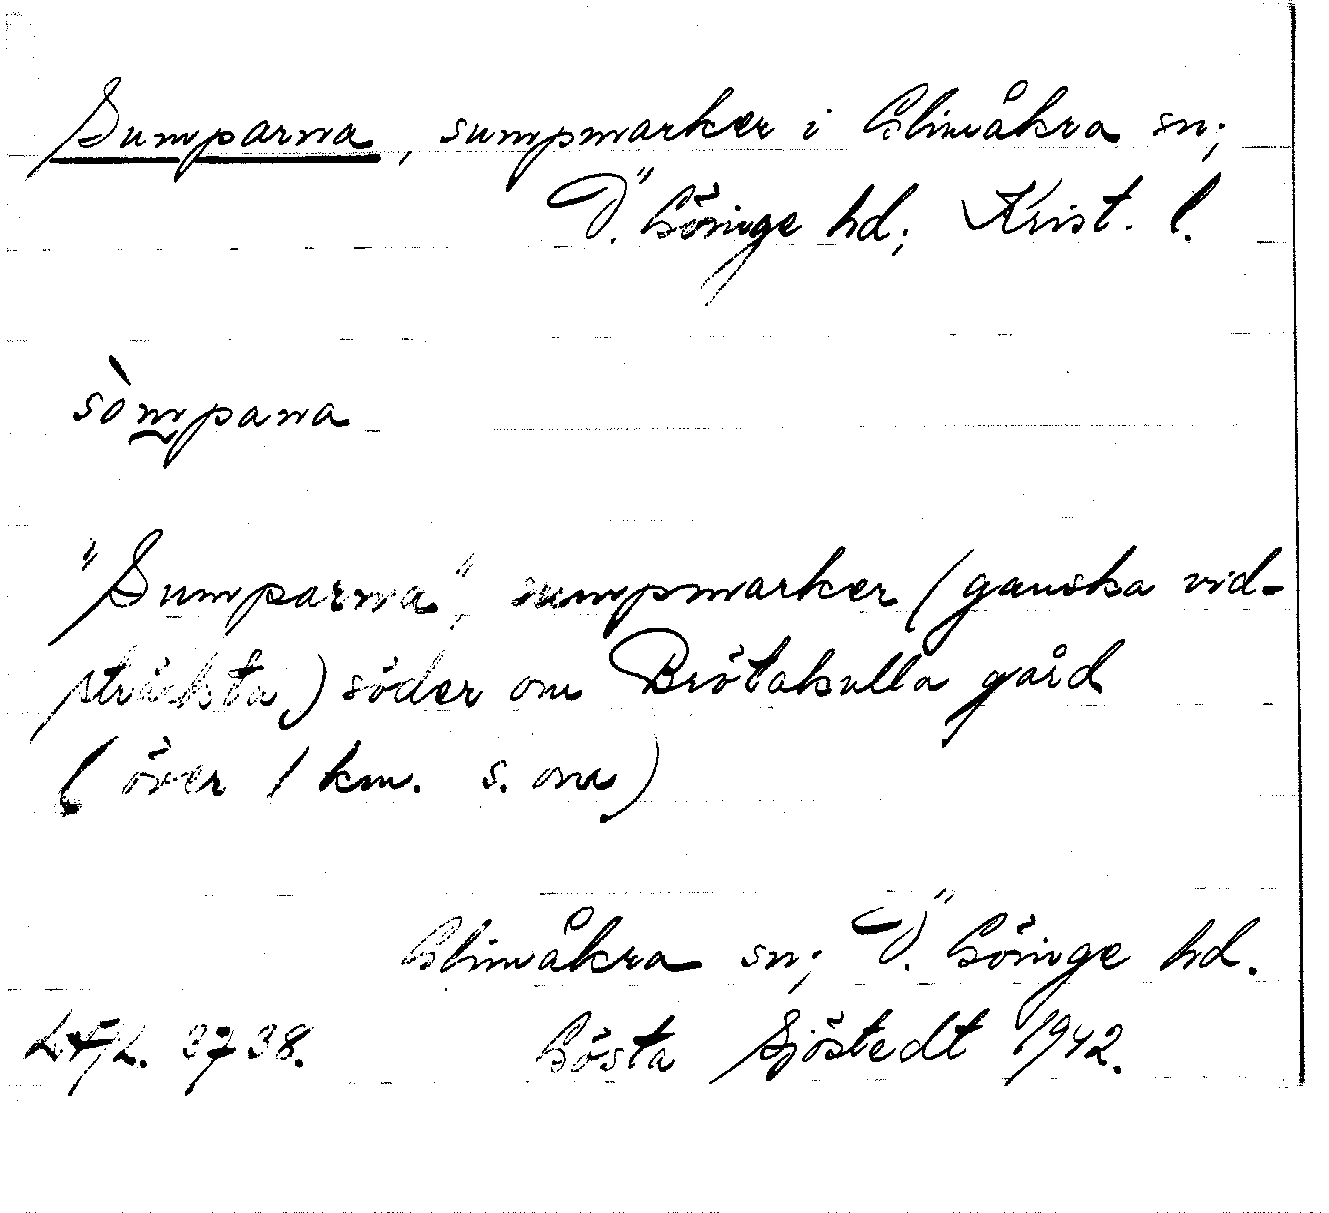 Sumparna, sumpmarker i Glimåkra sn;
Ö. Göinge hd; Krist. l.
sòm̰pana
"Sumparna", sumpmarker (ganska vid-
sträckta) söder om Brötakulla gård
(över 1 km. s. om)
Glimåkra sn; Ö. Göinge hd.
LAL. 3738. Gösta Sjöstedt 1942.